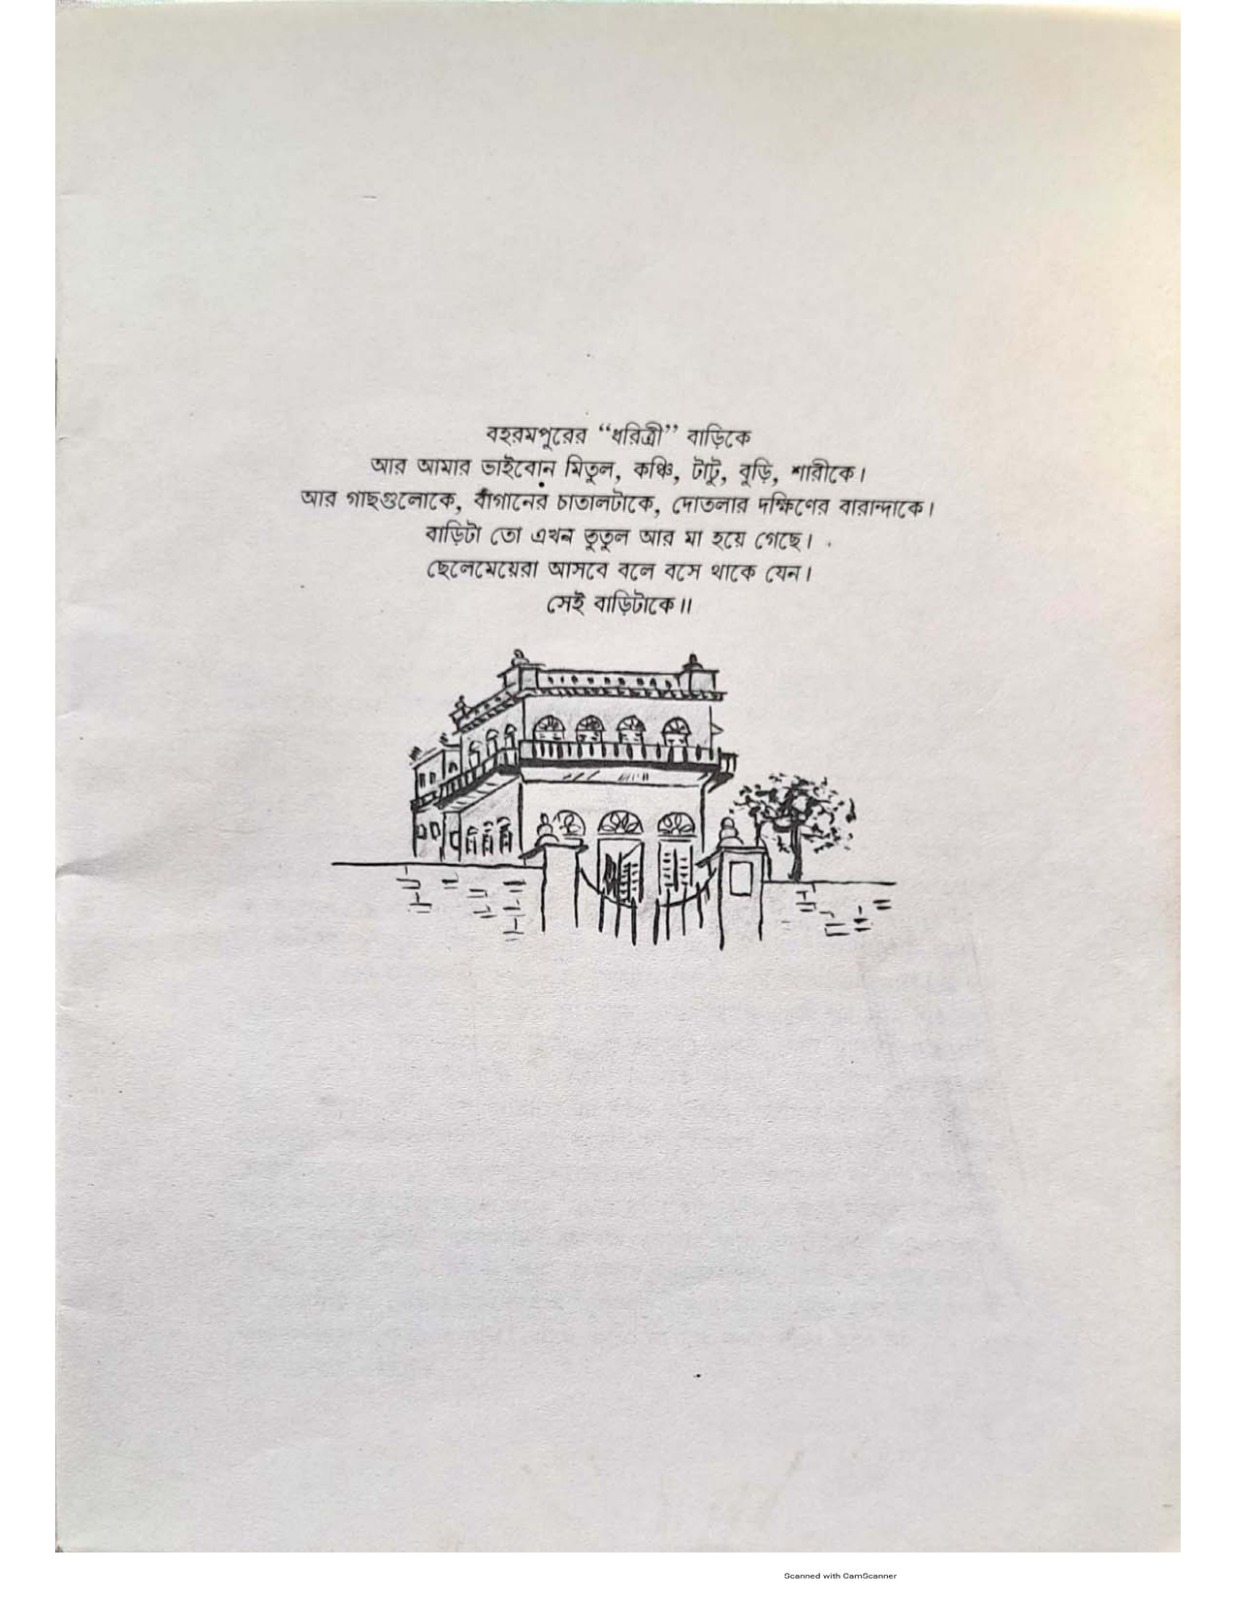 বহরমপুরের “ধরিত্রী” বাড়িকে
আর আমার ভাইবোন মিতুল, কঞ্চি, টাটু, বুড়ি, শারীকে।
আর গাছগুলোকে, বাগানের চাতালটাকে, দোতলার দক্ষিণের বারান্দাকে।
বাড়িটা তো এখন তুতুল আর মা হয়ে গেছে।
ছেলেমেয়েরা আসবে বলে বসে থাকে যেন।
সেই বাড়িটাকে॥
Scanned with CamScanner